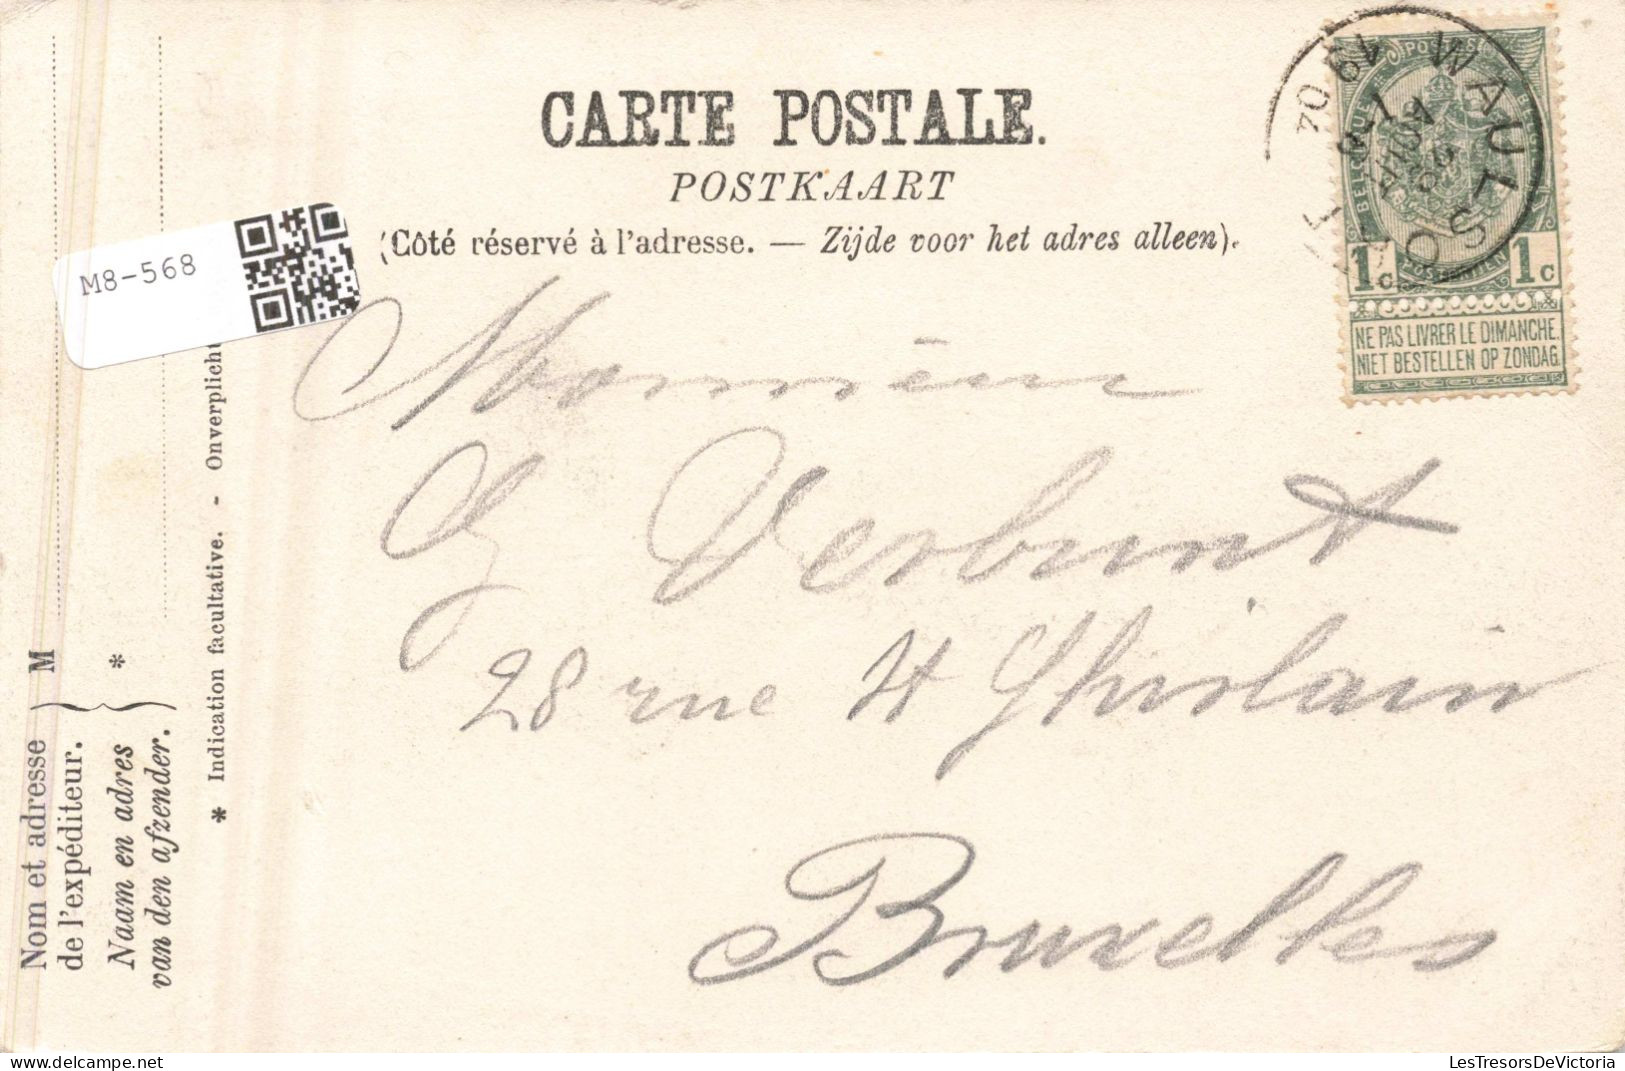 CARTE POSTALE.
POSTKAART
(Côté réservé à l'adresse. — Zijde voor het adres alleen).
M8-568
WAULSORT
POSTES
BELGIQUE
1c 1c
NE PAS LIVRER LE DIMANCHE
NIET BESTELLEN OP ZONDAG
Monsieur
G Verbunt
28 rue St Ghislain
Bruxelles
Nom et adresse M
de l'expéditeur.
Naam en adres *
van den afzender.
* Indication facultative. - Onverplicht
delcampe.net
LesTresorsDeVictoria